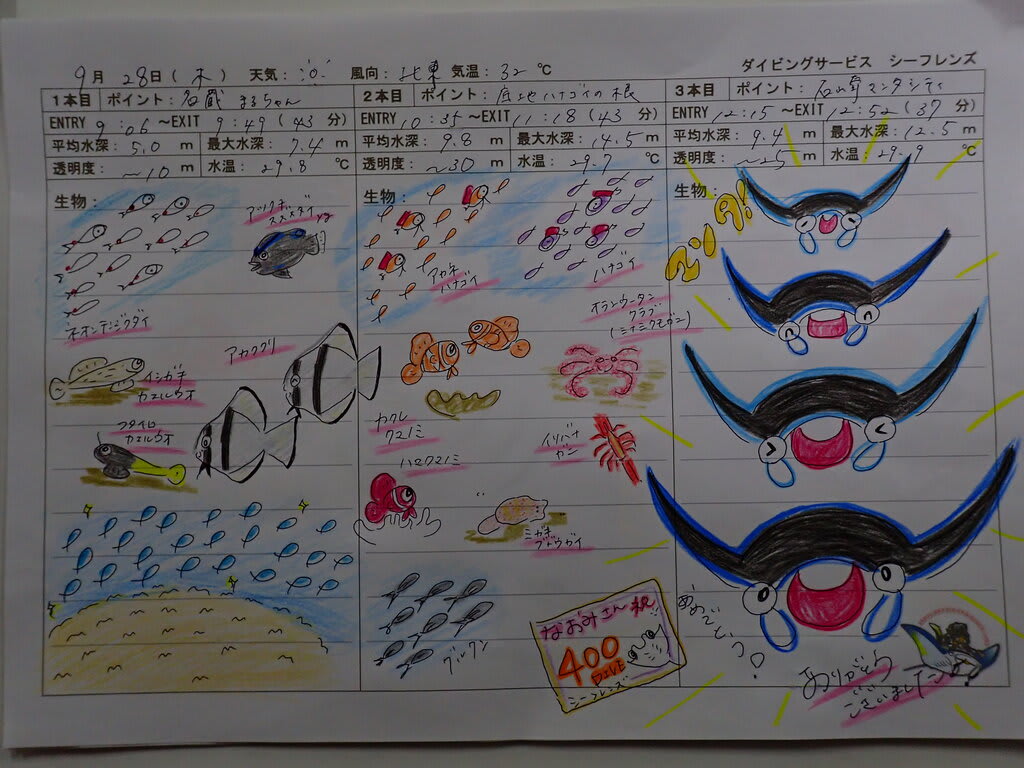 ダイビングサービス シーフレンズ
9月 28日(木) 天気: 風向: 北東 気温: 32℃
1本目 ポイント: 名蔵 まるちゃん
ENTRY 9:06 ~EXIT 9:49 (43分)
平均水深: 5.0 m 最大水深: 7.4 m
透明度: ~10 m 水温: 29.8 ℃
生物:
アツクチスズメダイyg
ネオンテンジクダイ
イシガキカエルウオ
アカククリ
フタイロカエルウオ
2本目 ポイント: 底地ハナゴイの根
ENTRY 10:35 ~EXIT 11:18 (43分)
平均水深: 9.8 m 最大水深: 14.5 m
透明度: ~30 m 水温: 29.7 ℃
生物:
アカネハナゴイ
ハナゴイ
オランウータンクラブ
(ミナミクモガニ)
カクレクマノミ
ハマクマノミ
イソバナガニ
ミガキブドウガイ
グルクン
なおみさん祝
400
DIVE
シーフレンズ
3本目 ポイント: 石崎マンタシティ
ENTRY 12:15 ~EXIT 12:52 (37分)
平均水深: 9.4 m 最大水深: 12.5 m
透明度: ~25 m 水温: 29.9 ℃
生物:
マンタ!!
おめでとう!
ありがとう
ございました